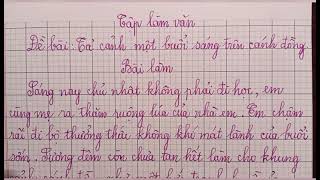 Tập làm văn
Đề bài: Tả cảnh một buổi sáng trên cánh đồng.
Bài làm
Sáng nay chủ nhật không phải đi học, em
cùng mẹ ra thăm ruộng lúa của nhà em. Em chậm
rãi đi bộ thưởng thức không khí mát lành của buổi
sớm. Sương đêm còn chưa tan hết làm cho khung